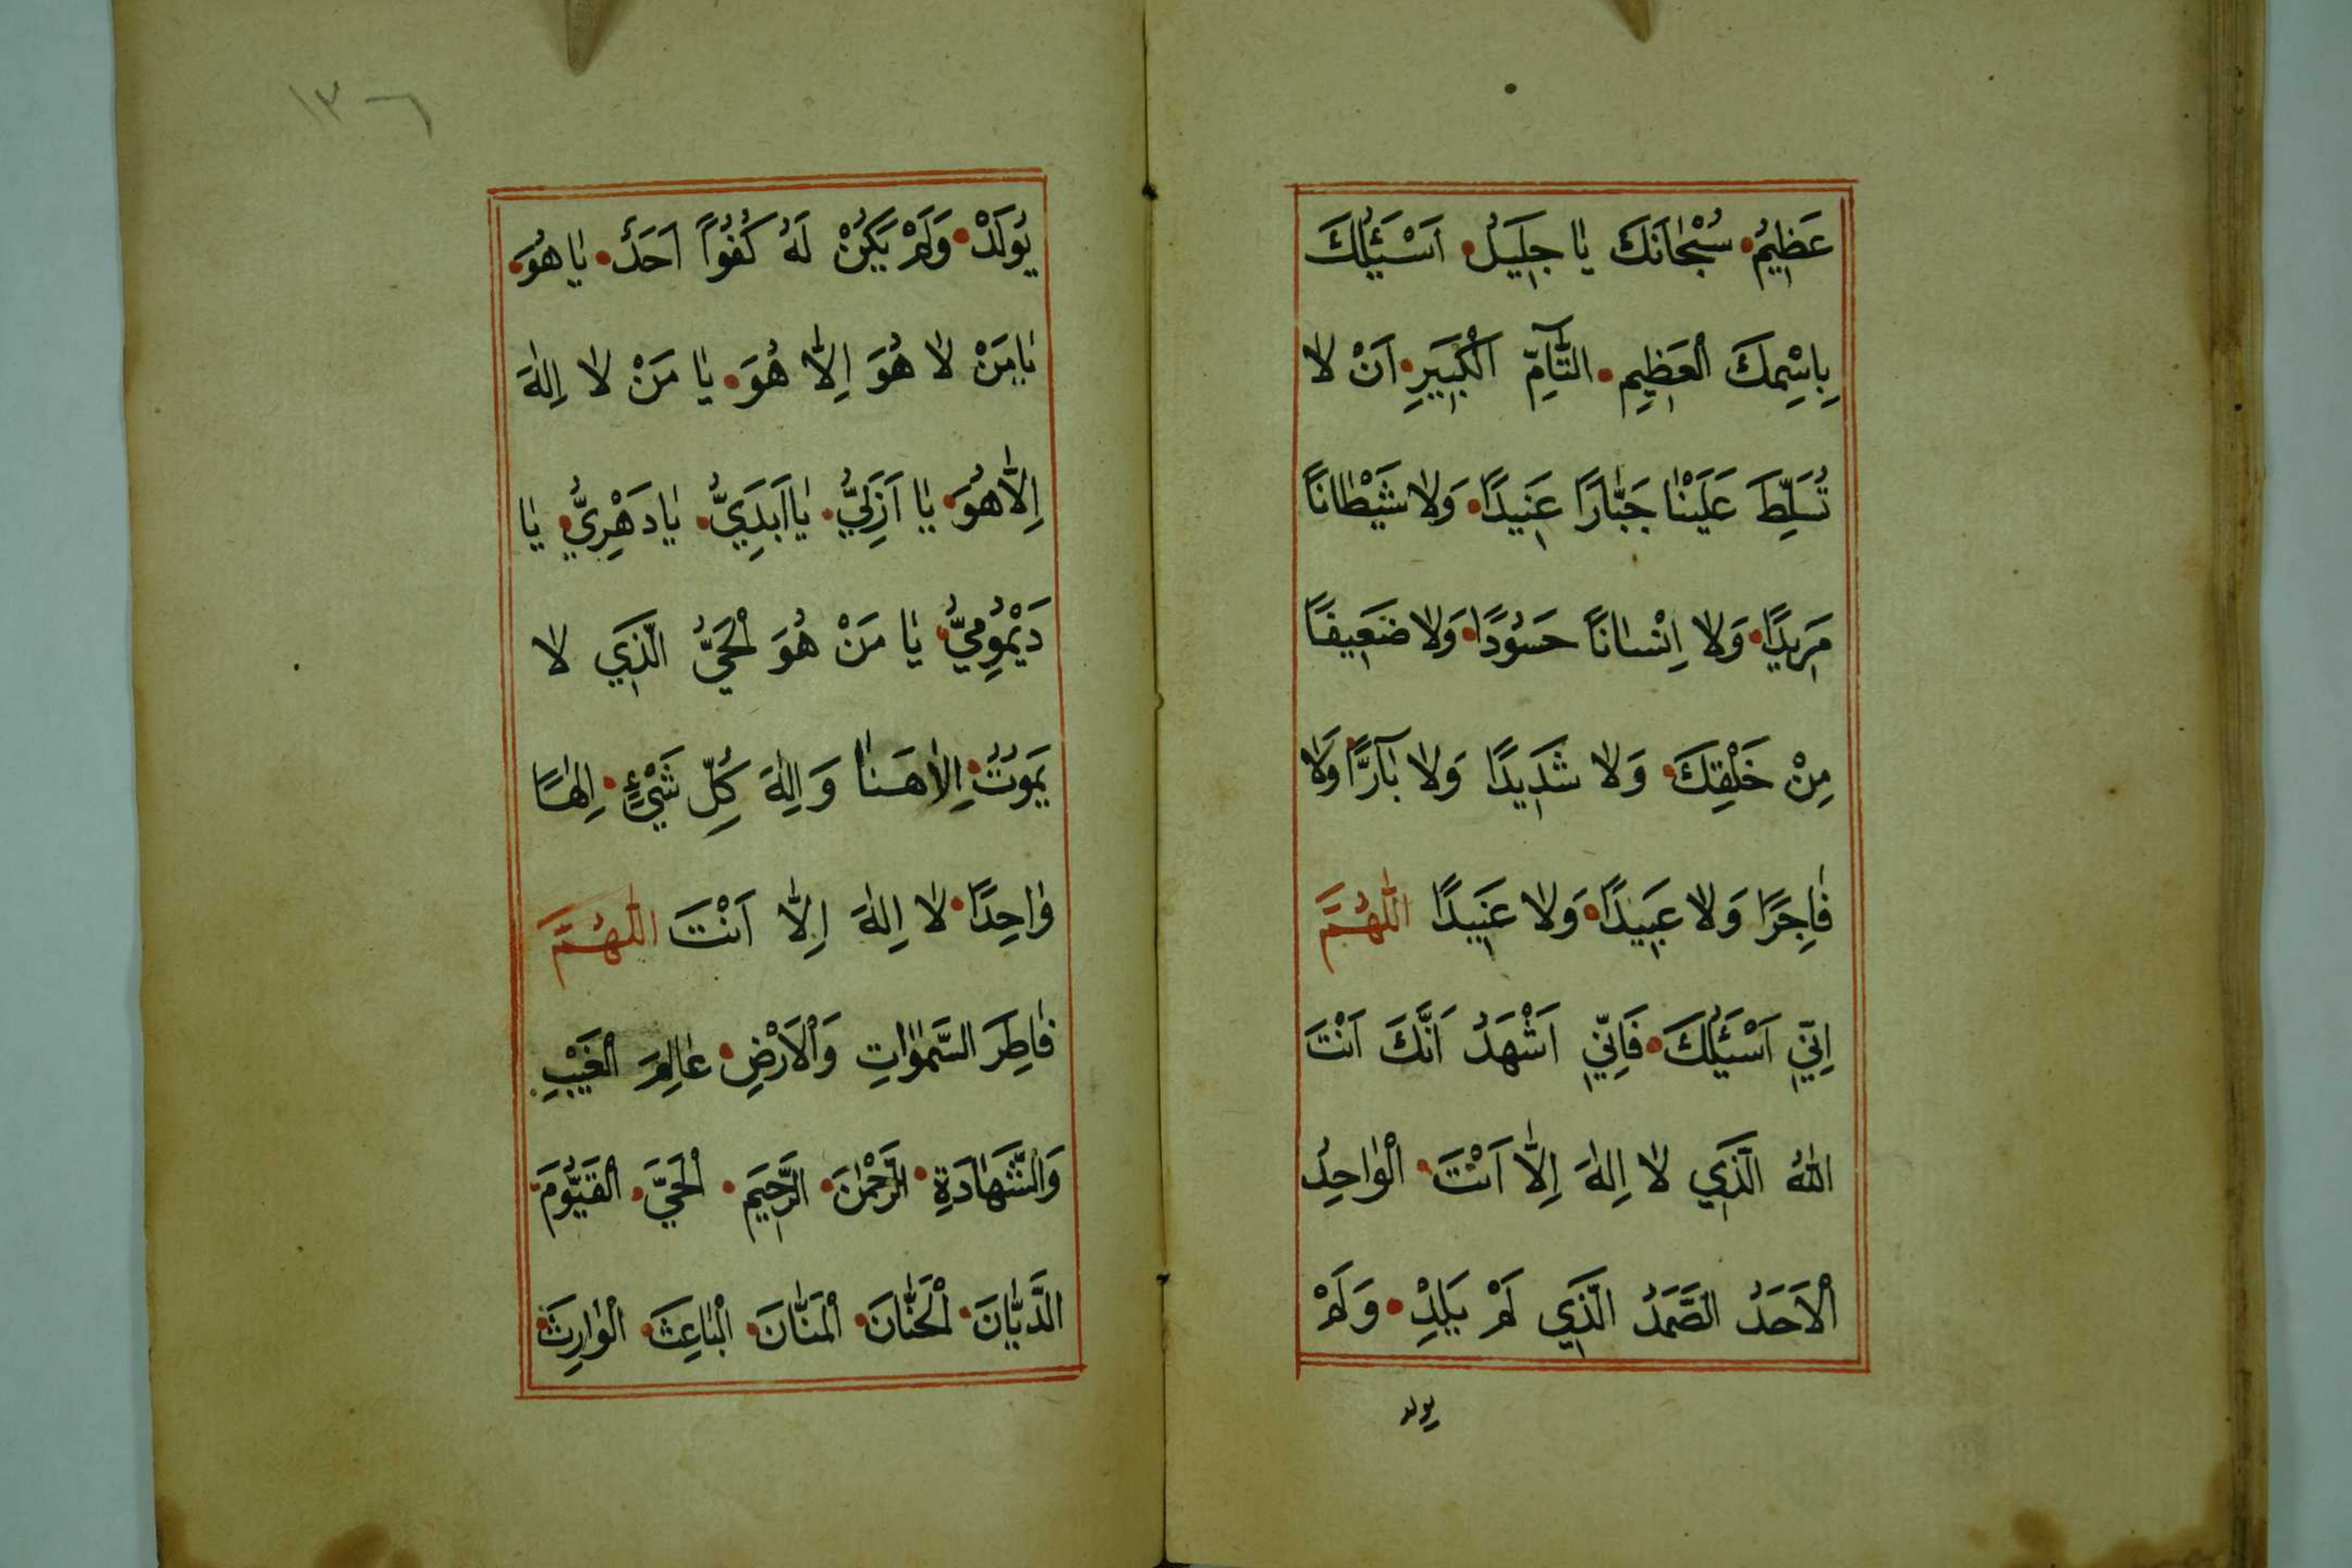 عَظِيمُ سُبْحَانَكَ يَا جَلِيلُ اَسْئَلُكَ
بِاسْمِكَ الْعَظِيمِ التَّآمِّ الْكَبِيرِ اَنْ لَا
تُسَلِّطَ عَلَيْنَا جَبَّارًا عَنِيدًا وَلَا شَيْطَانًا
مَرِيدًا وَلَا اِنْسَانًا حَسُودًا وَلَا ضَعِيفًا
مِنْ خَلْقِكَ وَلَا شَدِيدًا وَلَا بَآرًّا وَلَا
فَاجِرًا وَلَا عَبِيدًا وَلَا عَنِيدًا اَللّٰهُمَّ
اِنِّي اَسْئَلُكَ فَاِنِّي اَشْهَدُ اَنَّكَ اَنْتَ
اللهُ الَّذِي لَا اِلٰهَ اِلَّا اَنْتَ الْوَاحِدُ
الْاَحَدُ الصَّمَدُ الَّذِي لَمْ يَلِدْ وَلَمْ
يولد
١٣٦
يُولَدْ وَلَمْ يَكُنْ لَهُ كُفُوًا اَحَدٌ يَا هُوَ
يَا مَنْ لَا هُوَ اِلَّا هُوَ يَا مَنْ لَا اِلٰهَ
اِلَّا هُوَ يَا اَزَلِيُّ يَا اَبَدِيُّ يَا دَهْرِيُّ يَا
دَيْمُومِيُّ يَا مَنْ هُوَ الْحَيُّ الَّذِي لَا
يَمُوتُ اِلَاهَنَا وَاِلٰهَ كُلِّ شَيْءٍ اِلٰهًا
وَاحِدًا لَا اِلٰهَ اِلَّا اَنْتَ اَللّٰهُمَّ
فَاطِرَ السَّمٰوَاتِ وَالْاَرْضِ عَالِمَ الْغَيْبِ
وَالشَّهَادَةِ الرَّحْمٰنَ الرَّحِيمَ الْحَيَّ الْقَيُّومَ
الدَّيَّانَ الْحَنَّانَ الْمَنَّانَ الْبَاعِثَ الْوَارِثَ